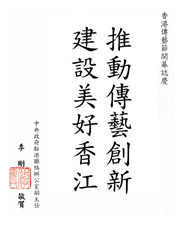 香港傳藝節開幕誌慶
推動傳藝創新
建設美好香江
中央政府駐港聯絡辦公室副主任
李剛
敬賀